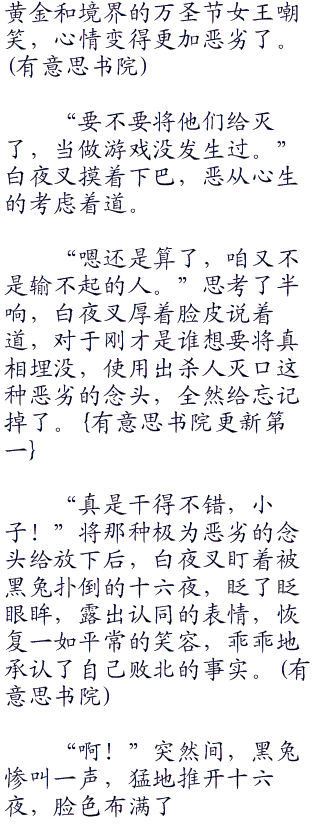 黄金和境界的万圣节女王嘲
笑，心情变得更加恶劣了。
(有意思书院)
“要不要将他们给灭
了，当做游戏没发生过。”
白夜叉摸着下巴，恶从心生
的考虑着道。
“嗯还是算了，咱又不
是输不起的人。”思考了半
响，白夜叉厚着脸皮说着
道，对于刚才是谁想要将真
相埋没，使用出杀人灭口这
种恶劣的念头，全然给忘记
掉了。{有意思书院更新第
一}
“真是干得不错，小
子！”将那种极为恶劣的念
头给放下后，白夜叉盯着被
黑兔扑倒的十六夜，眨了眨
眼眸，露出认同的表情，恢
复一如平常的笑容，乖乖地
承认了自己败北的事实。(有
意思书院)
“啊！”突然间，黑兔
惨叫一声，猛地推开十六
夜，脸色布满了